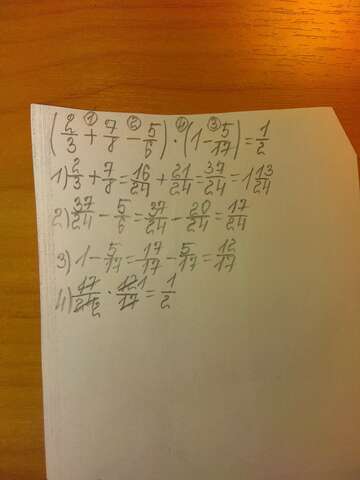 (2/3 ① + 7/8 ② − 5/6) ④ · (1 ③ − 5/17) = 1/2
1) 2/3 + 7/8 = 16/24 + 21/24 = 37/24 = 1 13/24
2) 37/24 − 5/6 = 37/24 − 20/24 = 17/24
3) 1 − 5/17 = 17/17 − 5/17 = 12/17
4) 17/24 2 · 12 1/17 = 1/2